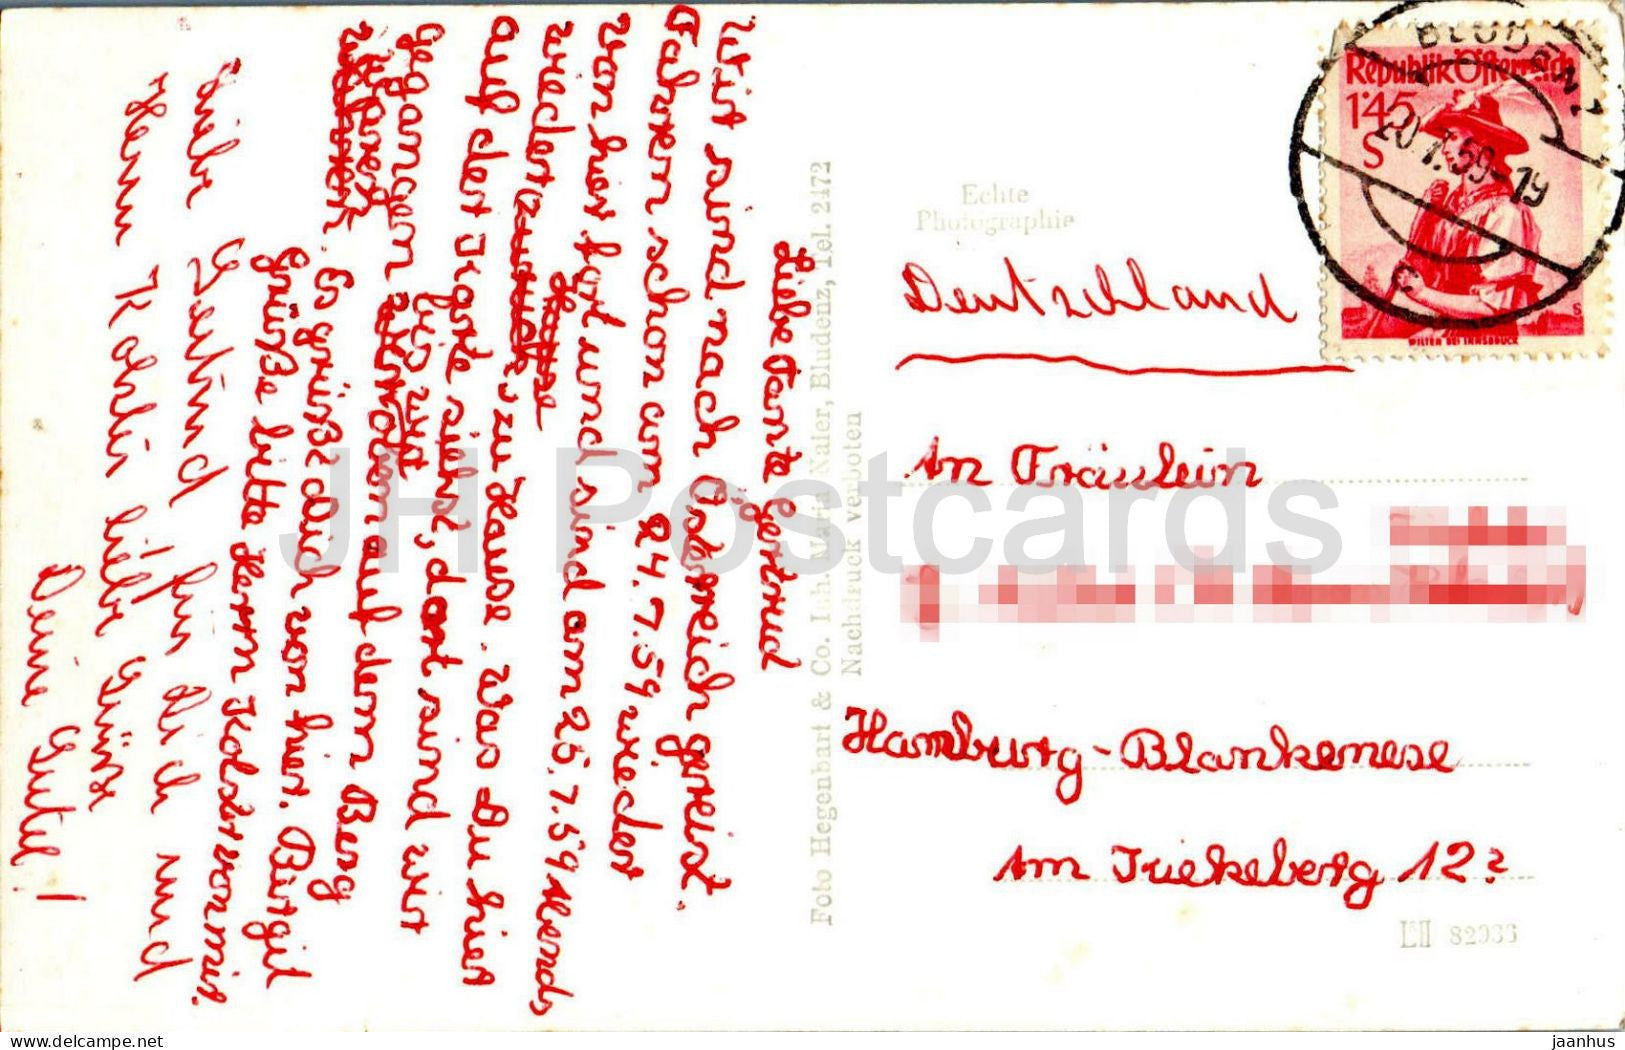 Liebe Tante Gertrud
Wir sind nach Österreich gereist.
Fahren schon am 24.7.59 wieder
von hier fort und sind am 25.7.59 Abends
wieder zu Hause. Was Du hier
auf der Karte siehst, dort sind wir
bis zur
gegangen oben auf dem Berg
waren. Es grüßt Dich von hier. Birgit
Grüße bitte Herrn Kolster von mir.
Liebe Gertrud für dich und
Herrn Kolster liebe Grüße
Deine Gutel!
Foto Hegenbart & Co. Inh. Maria Naier, Bludenz, Tel. 2472
Nachdruck verboten
Echte
Photographie
BLUDENZ
20.7.59-19
c
Republik Österreich
1'45
S
WILTEN BEI INNSBRUCK
S
Deutschland
An Fräulein
Hamburg-Blankenese
Am Kiekeberg 12?
LH 82966
JH Postcards
delcampe.net
jaanhus